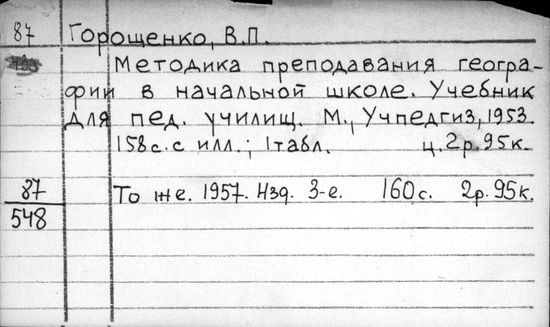 87 Горощенко, В.П.
Методика преподавания геогра-
фии в начальной школе. Учебник
для пед. училищ. М., Учпедгиз, 1953.
158с. с илл.; 1табл. ц. 2р. 95к.
87 То же. 1957. Изд. 3-е. 160с. 2р. 95к.
548